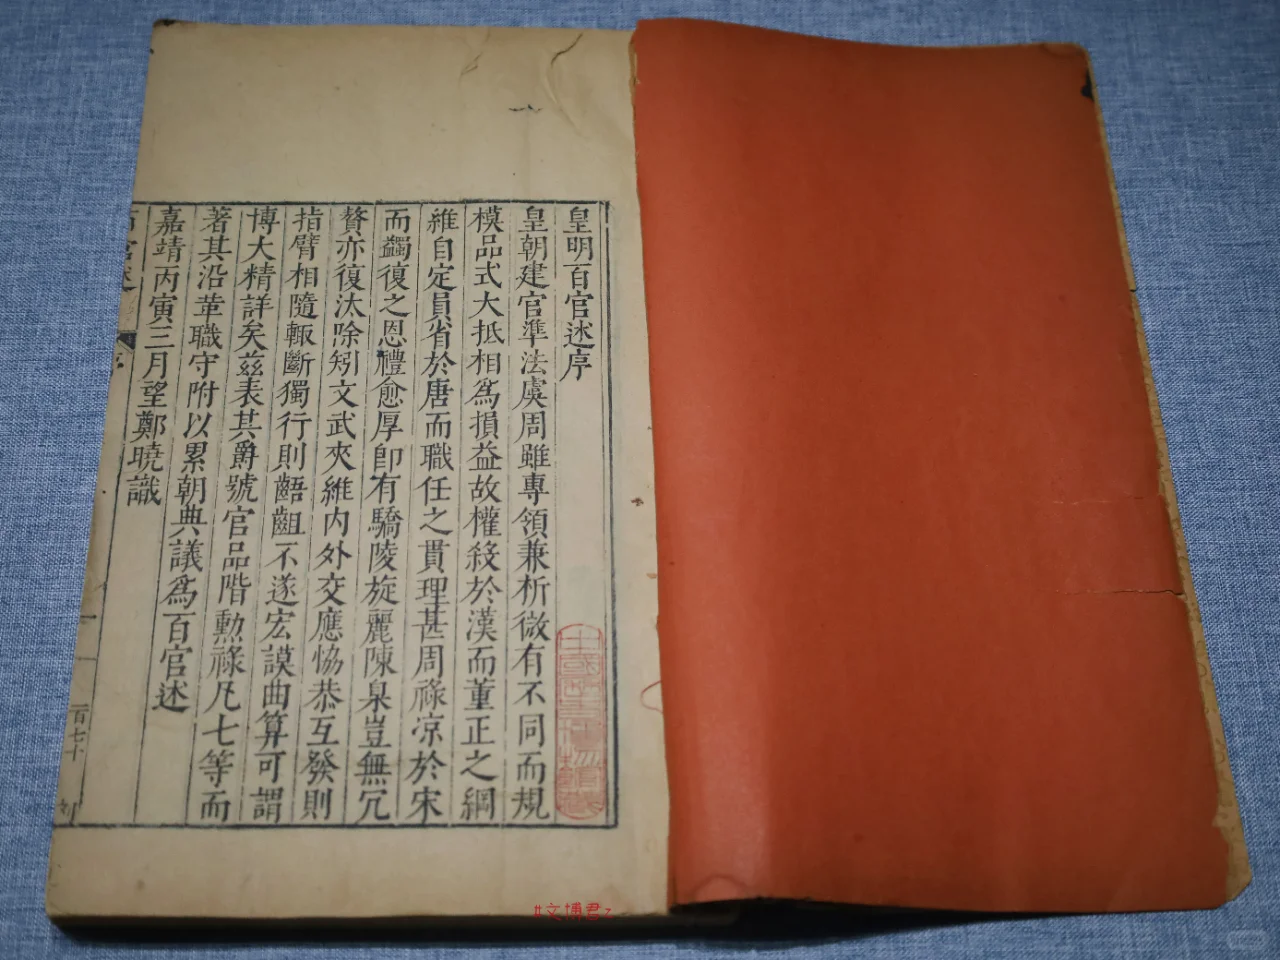 皇明百官述序
皇朝建官準法虞周雖專領兼析微有不同而規
模品式大抵相為損益故權殺於漢而董正之綱
維自定員省於唐而職任之貫理甚周祿凉於宋
而蠲復之恩禮愈厚卽有驕陵旋麗陳臬豈無冗
贅亦復汰除矧文武夾維內外交應恊恭互發則
指臂相隨輙斷獨行則齬齟不遂宏謨曲算可謂
博大精詳矣茲表其爵號官品階勲祿凡七等而
著其沿革職守附以累朝典議為百官述
嘉靖丙寅三月望鄭曉識
百官述
序
一百七十
#文博君z